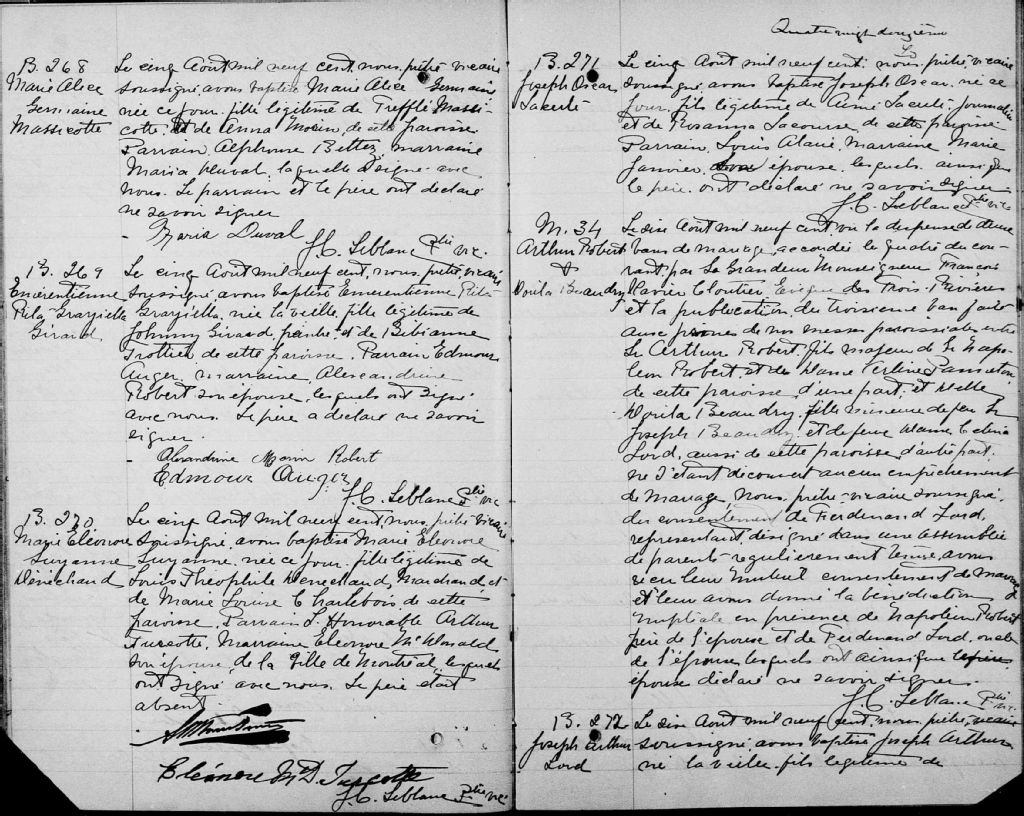 Quatre vingt douzième
B. 268
Marie Alice
Germaine
Massicotte
Le cinq Aout mil neuf cent, nous, prêtre, vicaire
soussigné, avons baptisé Marie Alice Germaine
née ce jour, fille légitime de Trefflé Massi-
cotte, et de Anna Morin, de cette paroisse
Parrain, Alphonse Bettez, marraine
Maria Duval, laquelle a signé avec
nous. Le parrain et le père ont déclaré
ne savoir signer
Maria Duval
J. C. Leblanc Ptre vic.
B. 269
Emérentienne
Rita Graziella
Girard
Le cinq Aout mil neuf cent, nous, prêtre, vicaire
soussigné, avons baptisé Emérentienne Rita
Graziella, née la veille, fille légitime de
Johnny Girard, peintre, et de Bibianne
Trottier de cette paroisse. Parrain Edmour
Auger, marraine, Alexandrine
Robert son épouse, lesquels ont signé
avec nous. Le père a déclaré ne savoir
signer.
Alexandrine Robert
Edmour Auger
J. C. Leblanc Ptre vic
B. 270.
Marie Eléonore
Suzanne
Dénéchaud
Le cinq Aout mil neuf cent, nous, prêtre vicaire
soussigné, avons baptisé Marie Eléonore
Suzanne, née ce jour, fille légitime de
Louis Théophile Dénéchaud, Marchand, et
de Marie Louise Charlebois, de cette
paroisse. Parrain L'Honorable Arthur
Turcotte, Marraine Eléonore McDonald
son épouse, de la Ville de Montréal, lesquels
ont signé avec nous. Le père était
absent.
Eléonore McD. Turcotte
J. C. Leblanc Ptre vic
B. 271
Joseph Oscar
Le cinq Aout mil neuf cent, nous, prêtre, vicaire
soussigné, avons baptisé Joseph Oscar, né ce
jour, fils légitime de journalier
et de Rosanna Lacourse, de cette paroisse
Parrain, Louis Alarie, Marraine, Marie
Janvier, son épouse, lesquels, ainsi que
le père, ont déclaré ne savoir signer
J. C. Leblanc Ptre vic
M. 34
Arthur Robert
&
Dorila Beaudry
Le six Aout mil neuf cent vu la dispense d'un
bans de mariage, accordée le quatre du cou-
rant, par Sa Grandeur Monseigneur François
Xavier Cloutier Evêque des Trois-Rivières
et la publication du troisième ban faite
aux prônes de nos messes paroissiales entre
Sr Arthur Robert, fils majeur de Sr Napo-
léon Robert, et de Dame
de cette paroisse d'une part; et Delle
Dorila Beaudry, fille mineure de feu Sr
Joseph Beaudry, et de feue Dame Célina
Lord, aussi de cette paroisse d'autre part;
ne s'étant découvert aucun empêchement
de Mariage Nous, prêtre-vicaire soussigné,
du consentement de Ferdinand Lord,
représentant désigné dans une assemblée
de parents régulièrement tenue, avons
reçu leur mutuel consentement de mariage
et leur avons donné la bénédiction
nuptiale en présence de Napoléon Robert
père de l'époux et de Ferdinand Lord, oncle
de l'épouse, lesquels ont ainsi que
épouse déclaré ne savoir signer.
J. C. Leblanc Ptre vic.
B. 272
Joseph Arthur
Lord
Le six Aout mil neuf cent, nous, prêtre, vicaire
soussigné, avons baptisé Joseph Arthur
né la veille, fils légitime de